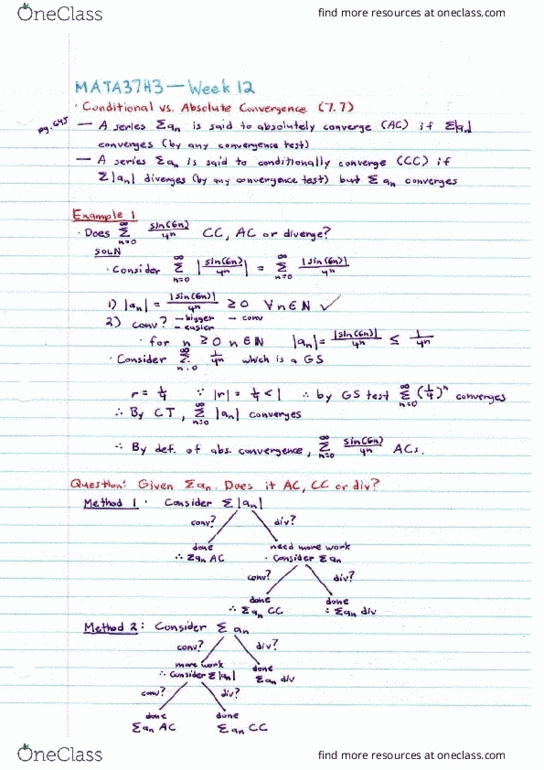 OneClass
find more resources at oneclass.com
MATA37H3 — Week 12
· Conditional vs. Absolute Convergence (7.7)
pg. 645
— A series Σaₙ is said to absolutely converge (AC) if Σ|aₙ|
converges (by any convergence test)
— A series Σaₙ is said to conditionally converge (CC) if
Σ|aₙ| diverges (by any convergence test) but Σaₙ converges
Example 1
· Does ∞ Σ n=0 sin(6n)/4ⁿ CC, AC or diverge?
SOLN
· Consider ∞ Σ n=0 |sin(6n)/4ⁿ| = ∞ Σ n=0 |sin(6n)|/4ⁿ
1) |aₙ| = |sin(6n)|/4ⁿ ≥ 0 ∀n∈N ✓
2) conv? — bigger — conv
— easier
· for n ≥ 0 n∈N |aₙ| = |sin(6n)|/4ⁿ ≤ 1/4ⁿ
· Consider ∞ Σ n=0 1/4ⁿ which is a GS
r = 1/4 ∵ |r| = 1/4 < 1 ∴ by GS test ∞ Σ n=0 (1/4)ⁿ converges
∴ By CT, ∞ Σ n=0 |aₙ| converges
∴ By def. of abs. convergence, ∞ Σ n=0 sin(6n)/4ⁿ ACs.
Question: Given Σaₙ. Does it AC, CC or div?
Method 1: Consider Σ|aₙ|
conv? div?
done need more work
∴ Σaₙ AC · Consider Σaₙ
conv? div?
done done
∴ Σaₙ CC ∴ Σaₙ div
Method 2: Consider Σaₙ
conv? div?
more work done
∴ Consider Σ|aₙ| Σaₙ div
conv? div?
done done
Σaₙ AC Σaₙ CC
OneClass
find more resources at oneclass.com